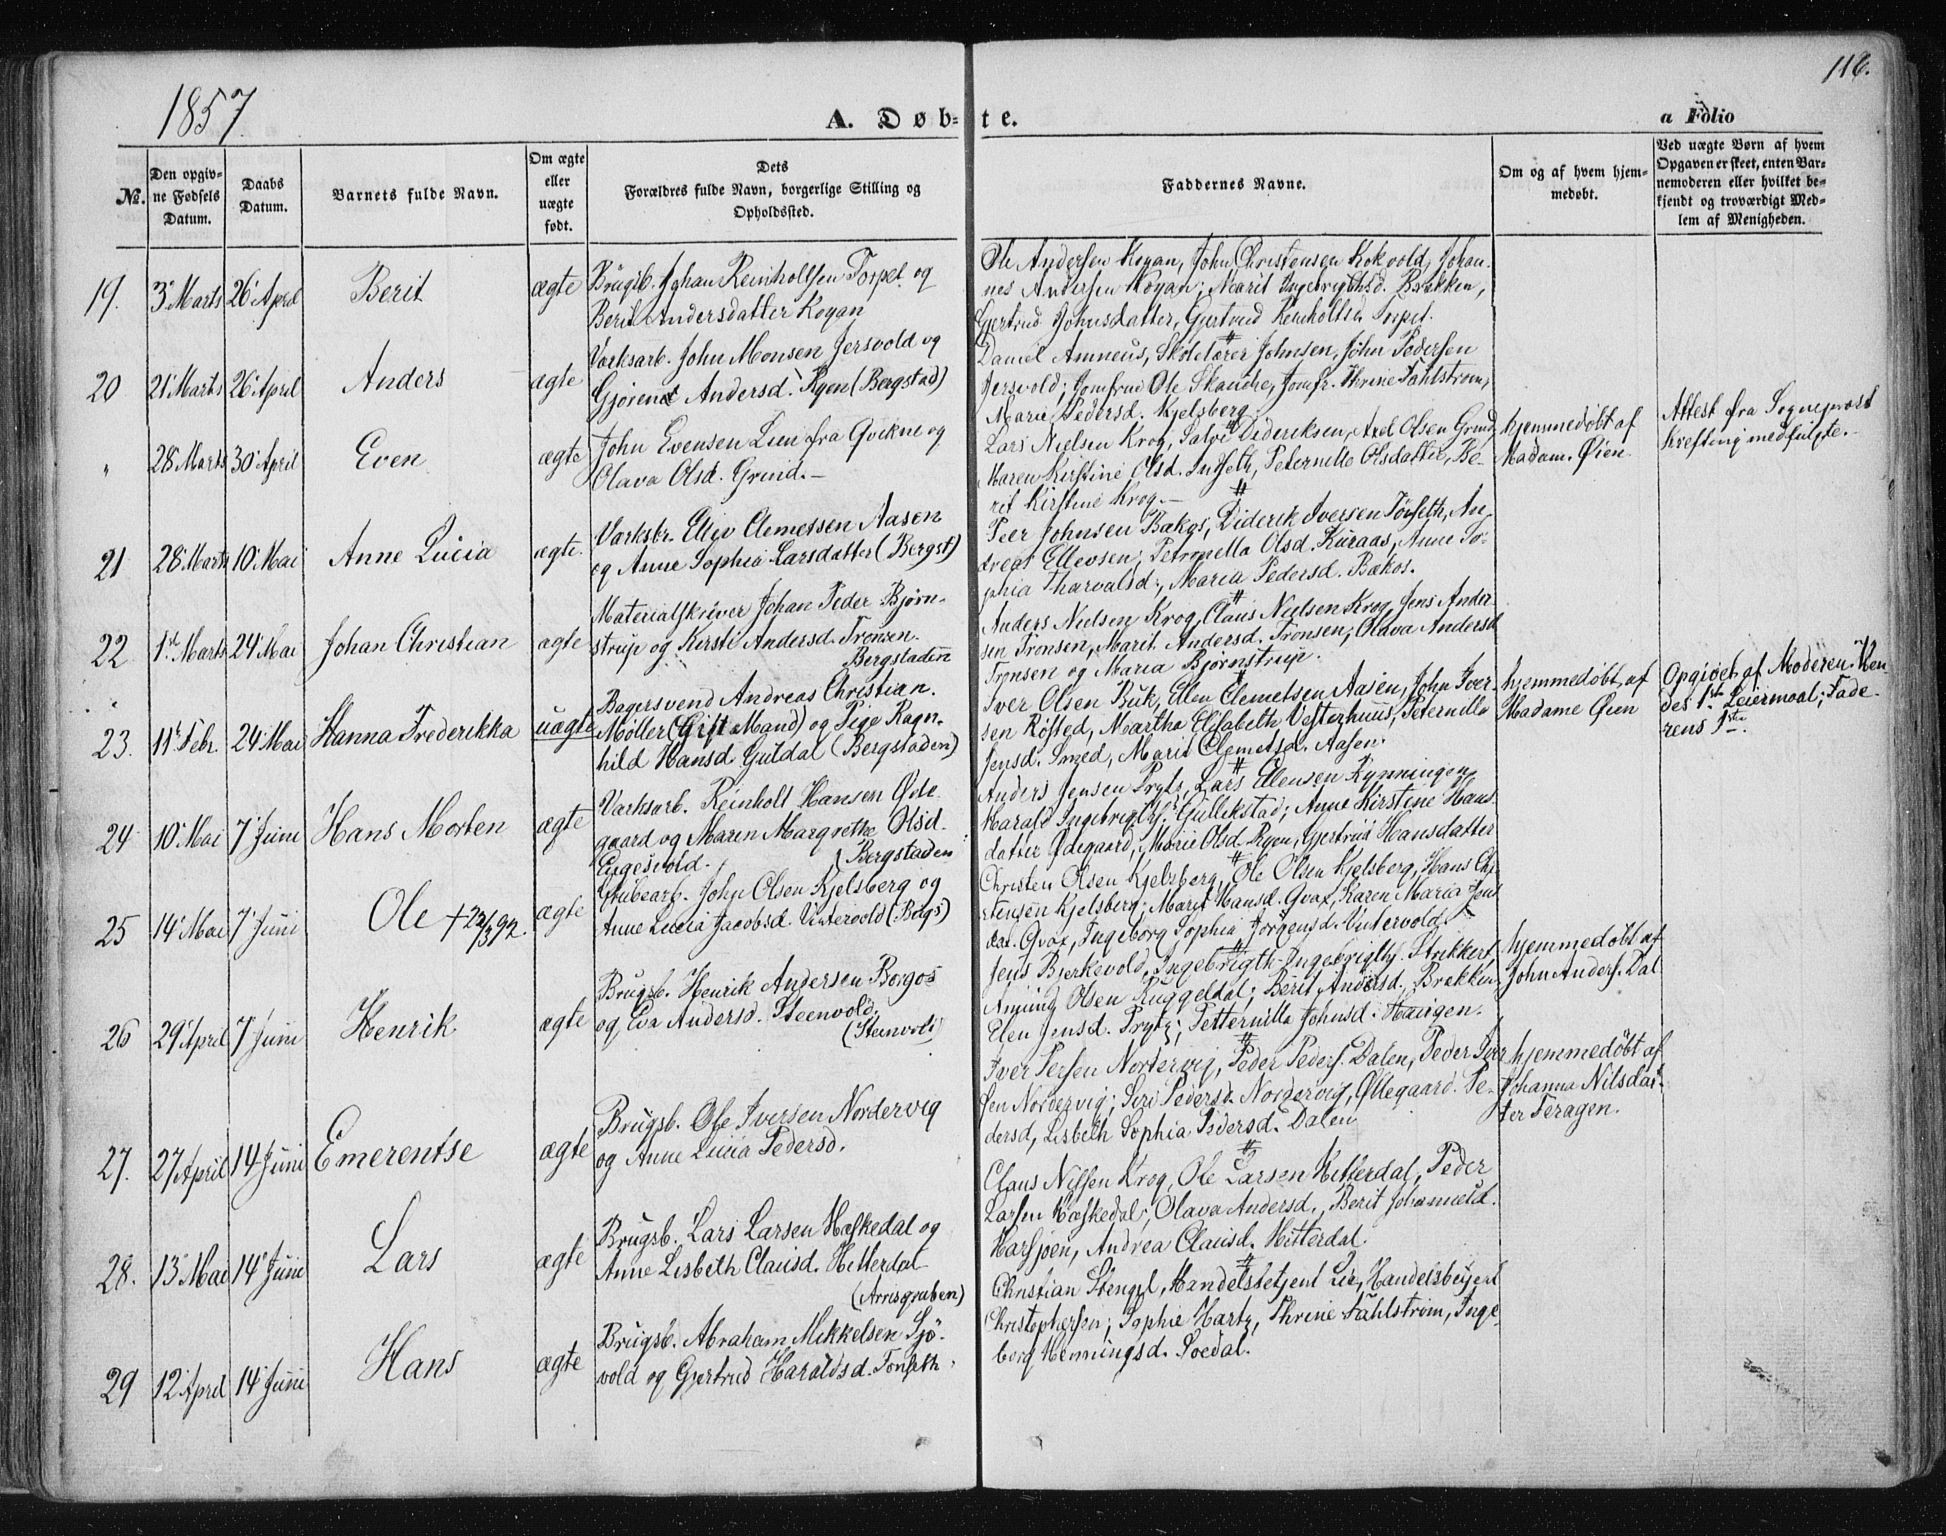 1857.
A. Døb-te.
a Folio
116.
No.
Den opgiv-
ne Fødsels
Datum.
Daabs
Datum.
Barnets fulde Navn.
Om ægte
eller
uægte
født.
Dets
Forældres fulde Navn, borgerlige Stilling og
Opholdssted.
Faddernes Navne.
Om og af hvem hjem-
medøbt.
Ved uægte Børn af hvem
Opgaven er skeet, enten Bar-
nemoderen eller hvilket be-
kjendt og troværdigt Med-
lem af Menigheden.
19. 3 Marts 26 April Berit ægte
Brugsb. Johan Reinholtsen Torpet og
Berit Andersdatter Koyan
Ole Andersen Koyan, John Christensen Kokvold, Johan-
nes Andersen Koyan; Marit Ingebrigtsd. Brækken,
Gjertrud Johnsdatter, Gjertrud Reinholtsd. Torpet.
20 21 Marts 26 April Anders ægte
Varksarb. John Monsen Jersvold og
Gjørend Andersd. Ryen (Bergstad)
Daniel Amneus, Skolelærer Johnsen, John Pedersen
Jersvold; Jomfrue Ole Skanche, Jomfr. Thrine Fahlstrøm,
Marie Pedersd. Kjelsberg.
" 28 Marts 30 April Even ægte
John Evensen Lien fra Qvikne og
Olava Olsd. Grind.-
Lars Nielsen Krog, Salve Dideriksen, Axel Olsen Grind
Maren Kirstine Olsd. Indseth, Peternille Olsdatter, Be-
rit Kirstine Krog.-
hjemmedøbt af
Madam. Øien
Attest fra Sogneprest
Krefting medfulgte.-
21 28 Marts 10 Mai Anne Lucia ægte.
Varksbr. Ellev Clemetsen Aasen
og Anne Sophia Larsdatter (Bergst)
Peer Johnsen Bakos, Diderik Iversen Torseth, An-
dreas Ellevsen; Petronella Olsd. Kuraas, Anne So-
phia Tharvalsd., Maria Pedersd. Bakos.
22 1ste Marts 24 Mai Johan Christian ægte
Materialskriver Johan Peder Bjørn-
strup og Kirsti Andersd. Tronsen.
Bergstaden
Anders Nielsen Krog, Claus Nielsen Krog, Jens Ander-
sen Tronsen, Marit Andersd. Tronsen; Olava Andersd
Tronsen og Maria Bjørnstrup.
23. 11te Febr. 24 Mai Hanna Frederikka uægte
Bagersvend Andreas Christian
Møller (Gift Mand) og Pige Ragn-
hild Hansd Guldal (Bergstaden)
Iver Olsen Buk, Ellev Clemetsen Aasen, John Iver-
sen Røsted, Martha Elisabeth Vesterhuus, Peternilla
Jensd. Smed, Marit Clemetsd. Aasen.
hjemmedøbt, af
Madame Øien
Opgivet af Moderen. Hen-
des 1ste Leiermaal; Fade-
rens 1ste.
24 10 Mai 7 Juni Hans Morten ægte
Varksarb. Reinholt Hansen Øde-
gaard og Maren Margrethe Olsd.
Engesvold. (Bergstaden
Anders Jensen Prytz, Lars Ellensen Rynningen,
Harald Ingebrigts. Gullikstad; Anne Kirstene Hans-
datter Ødegaard, Marie Olsd. Ryen, Gjertrud Hansdatter
25 14 Mai 7 Juni Ole +22/3 92. ægte
Grubearb. John Olsen Kjelsberg og
Anne Lucia Jacobsd. Vintervold (Bergs)
Christen Olsen Kjelsberg, Ole Olsen Kjelsberg, Hans Chr-
stensen Kjelsberg; Marit Hansd. Qvat, Karen Maria Jens
dat. Qvat, Ingeborg Sophia Jørgensd. Vintervold.
26 29 April 7 Juni Henrik ægte
Brugsb. Henrik Andersen Borgos
og Eva Andersd. Steenvold.
(Stenvold)
Jens Bjerkevold, Ingebrigth Ingebrigths. Strikkert,
Amund Olsen Ruggeldal; Berit Andersd. Brækken
Elen Jensd. Prytz; Petternilla Johnsd. Haugen.
hjemmedøbt af
John Anders. Dal
27. 27 April 14 Juni Emerentse ægte
Brugsb. Ole Iversen Nordervig
og Anne Lucia Pedersd.
Iver Persen Nordervig, Peder Peders. Dalen, Peder Iver
sen Nordervig; Siri Pedersd. Nordervig, Øllegaard Pe-
dersd, Lisbeth Sophia Pedersd. Dalen
hjemmedøbt af
Johanna Nilsdat-
ter Feragen.
28. 13 Mai 14 Juni Lars ægte
Brugsb. Lars Larsen Haskedal og
Anne Lisbeth Clausd. Hitterdal
(Arvisgruben)
Claus Nilsen Krog, Ole Larsen Hitterdal, Peder
Larsen Haskedal; Olava Andersd., Berit Johannesd.
Harsjøen, Andrea Clausd. Hitterdal.
29 12 April 14 Juni Hans ægte
Brugsb. Abraham Mikkelsen Sjø-
vold og Gjertrud Haraldsd. Tonseth.
Christian Stengel, Handelsbetjent Lie, Handelsbetjent
Christophersen; Sophie Hartz, Thrine Fahlstrøm, Inge-
borg Henningsd. Soedal.